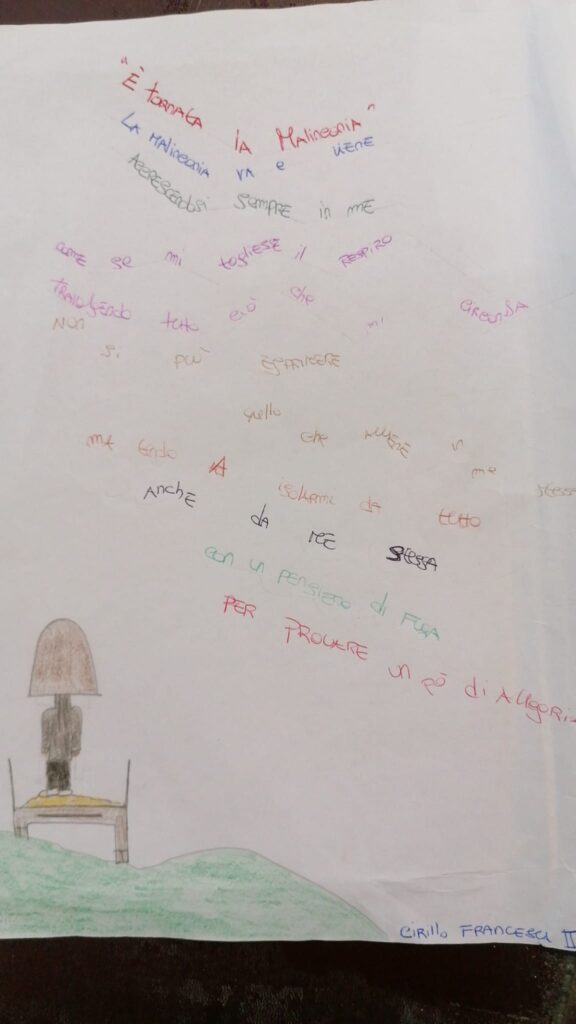 "È tornata la Malinconia"
La malinconia va e viene
Accrescendosi sempre in me
come se mi togliese il respiro
Travolgendo tutto ciò che mi circonda
Non si può esprimere
quello che avviene in me stessa
me tendo A isolarmi da tutto
Anche da me stessa
con un pensiero di fuga
per provare un pò di Allegri
Cirillo Francesc II